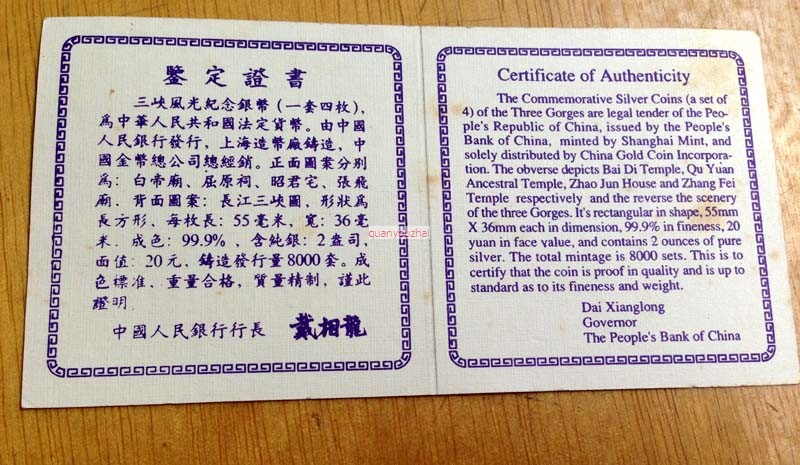 鑒定證書
三峽風光紀念銀幣(一套四枚),
爲中華人民共和國法定貨幣。由中國
人民銀行發行,上海造幣廠鑄造,中
國金幣總公司總經銷。正面圖案分别
爲:白帝廟、屈原祠、昭君宅、張飛
廟.背面圖案:長江三峽圖,形狀爲
長方形、每枚長:55毫米,寬:36毫
米.成色:99.9%,含純銀:2盎司,
面值:20元,鑄造發行量8000套。成
色標准、重量合格,質量精制,謹此
證明.
中國人民銀行行長 戴相龍
Certificate of Authenticity
The Commemorative Silver Coins (a set of
4) of the Three Gorges are legal tender of the Peo-
ple's Republic of China, issued by the People's
Bank of China, minted by Shanghai Mint, and
solely distributed by China Gold Coin Incorpora-
tion. The obverse depicts Bai Di Temple, Qu Yuan
Ancestral Temple, Zhao Jun House and Zhang Fei
Temple respectively and the reverse the scenery
of the three Gorges. It's rectangular in shape, 55mm
X 36mm each in dimension, 99.9% in fineness, 20
yuan in face value, and contains 2 ounces of pure
silver. The total mintage is 8000 sets. This is to
certify that the coin is proof in quality and is up to
standard as to its fineness and weight.
Dai Xianglong
Governor
The People's Bank of China